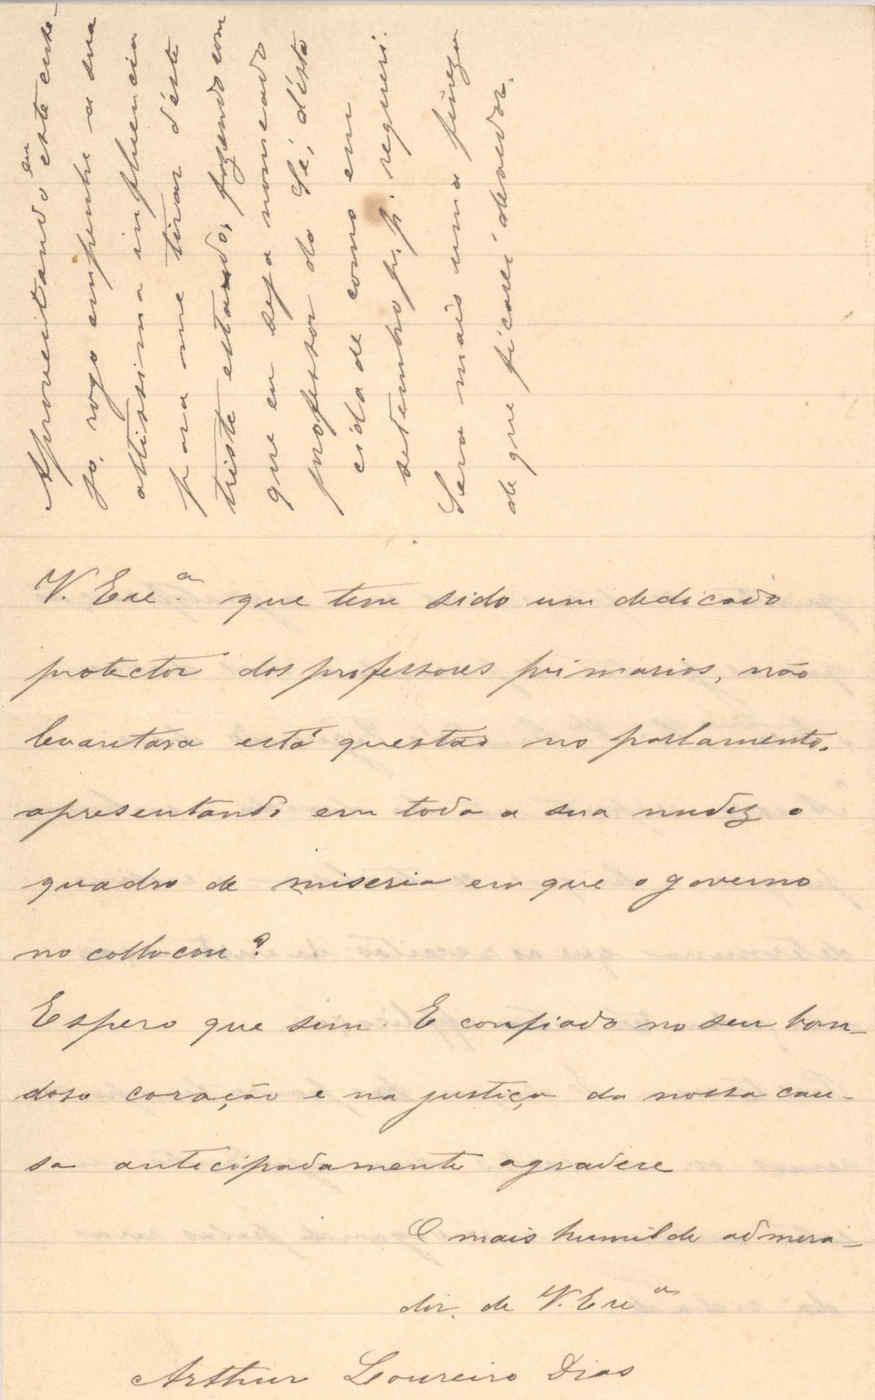 V. Exc.ª que tem sido um dedicado
protector dos professores primarios, não
levantará está questão no parlamento,
apresentando em toda a sua nudez o
quadro de miseria em que o governo
no collocou?
Espero que sim. E confiado no seu bon-
doso coração e na justiça da nossa cau-
sa antecipadamente agradece
O mais humilde admira-
dor. de V. Exc.ª
Arthur Loureiro Dias
Aproveitando eu este ense-
jo, rogo empenhe a sua
altissima influencia
para me tirar d'este
triste estado, fazendo com
que eu seja nomeado
professor da Sé, d'ésta
cidade como em
setembro p. p. requeri.
Será mais uma fineza
de que ficarei devedor.